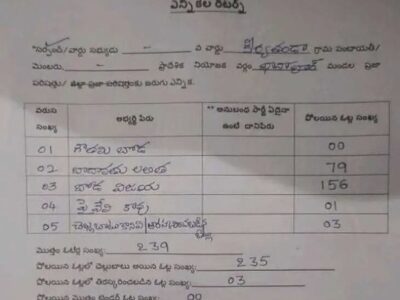 ఎన్నికల రిటర్న్
*సర్పంచ్/వార్డు సభ్యుడు - వ వార్డు గ్రామ పంచాయతీ/
మెంబరు, - ప్రాదేశిక నియోజక వర్గం, మండల ప్రజా
పరిషత్తు/ జిల్లా ప్రజా పరిషత్తుకు జరుగు ఎన్నిక.
వరుస సంఖ్య
అభ్యర్థి పేరు
** అనుబంధ పార్టీ ఏదైనా ఉంటే దానిపేరు
పోలయిన ఓట్ల సంఖ్య
01 గౌతమి బోడ 00
02 లలిత 79
03 బోడ విజయ 156
04 01
05 03
మొత్తం ఓటర్ల సంఖ్య: 239
పోలయిన ఓట్లలో చెల్లుబాటు అయిన ఓట్ల సంఖ్య: 235
పోలయిన ఓట్లలో తిరస్కరించబడిన ఓట్ల సంఖ్య: 03
పోలయిన మొత్తం టెండర్ ఓట్ల సంఖ్య: 00